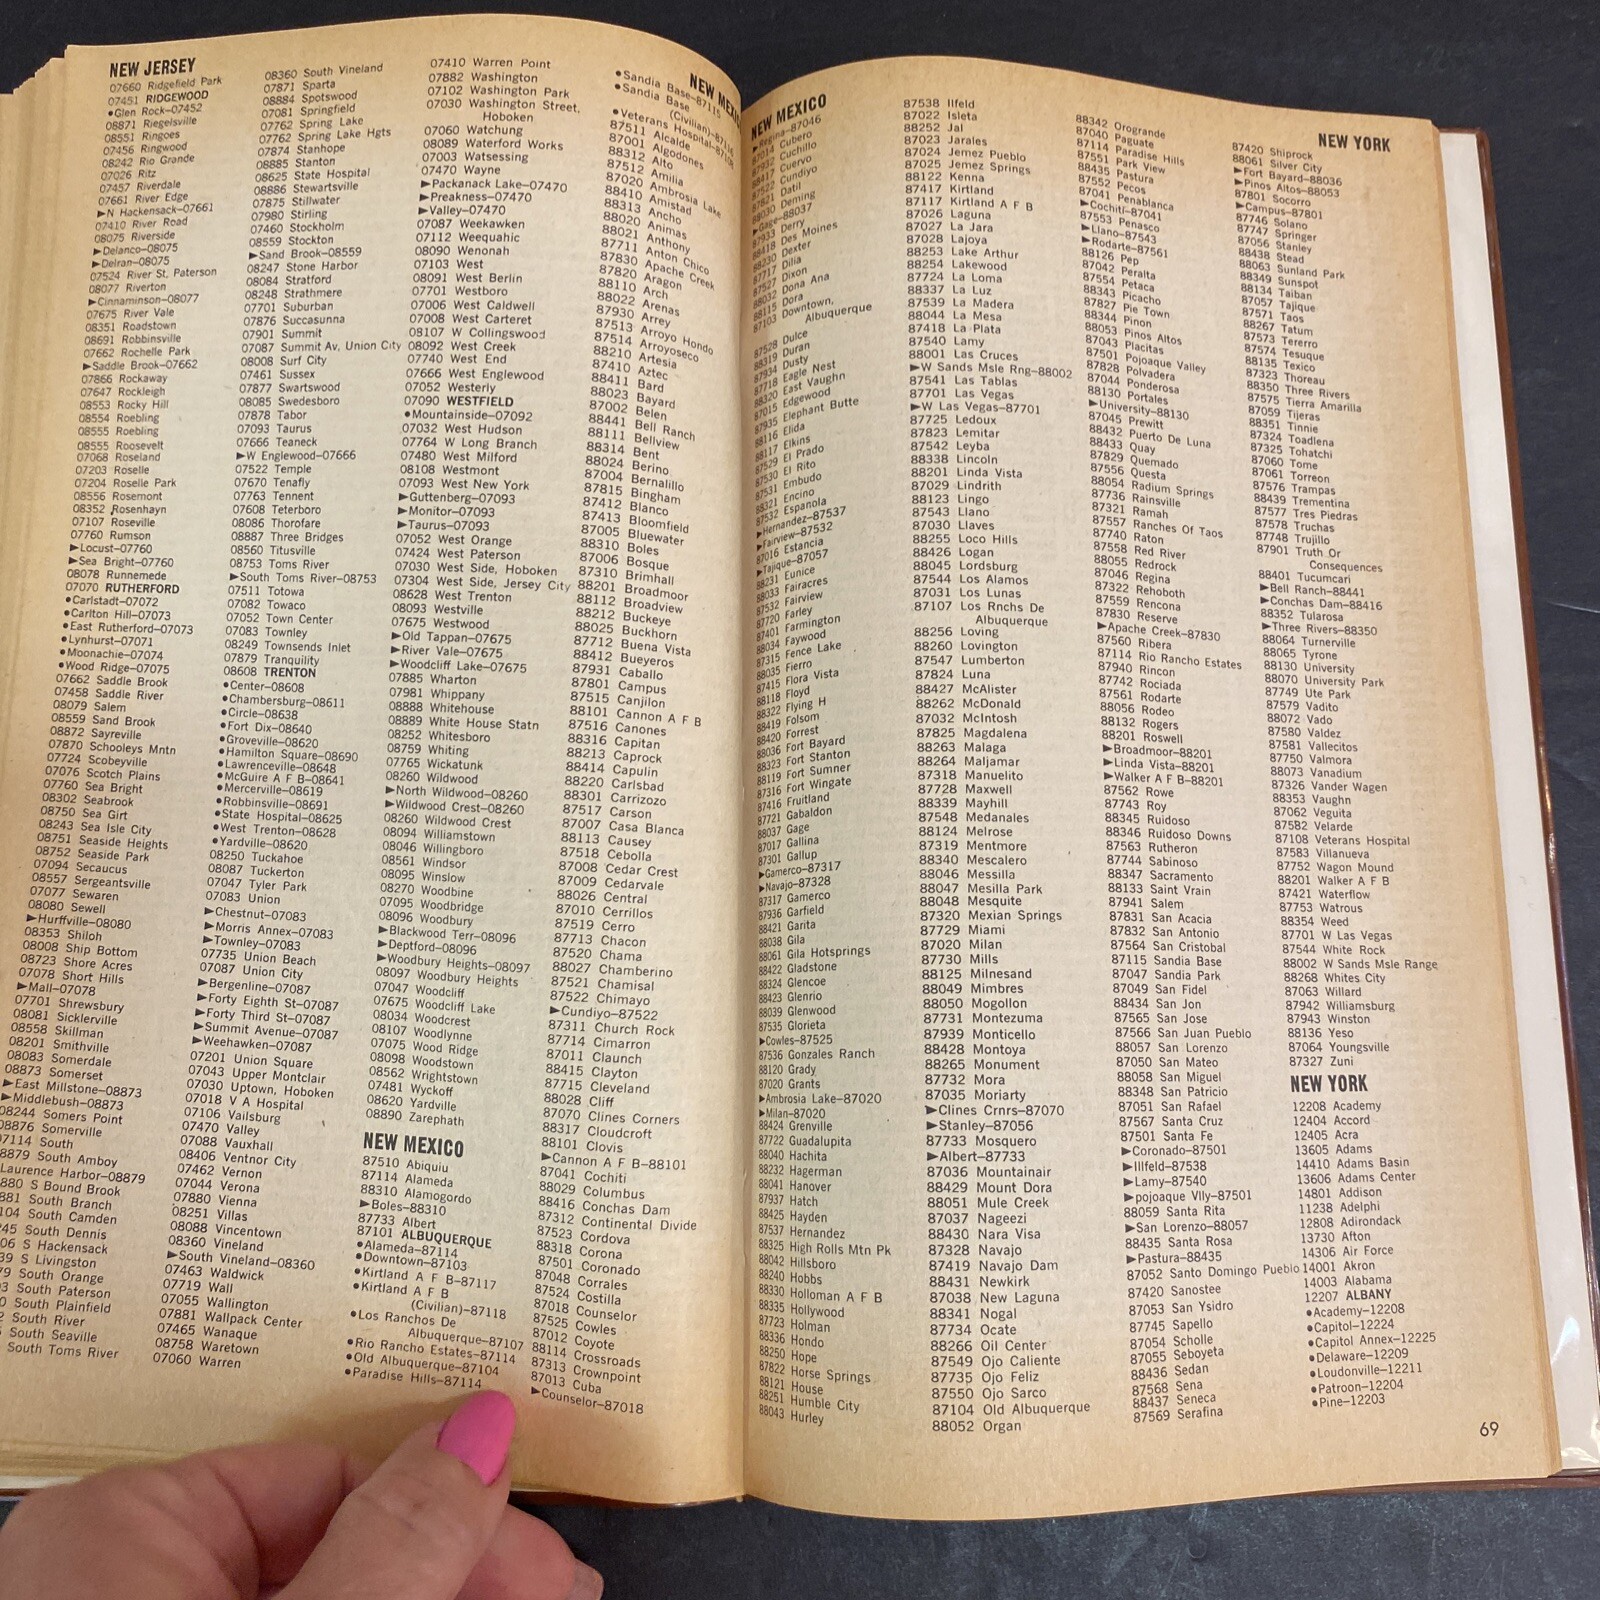 NEW JERSEY
07660 Ridgefield Park
07451 RIDGEWOOD
●Glen Rock—07452
08871 Riegelsville
08551 Ringoes
07456 Ringwood
08242 Rio Grande
07026 Ritz
07457 Riverdale
07661 River Edge
►N Hackensack—07661
07410 River Road
08075 Riverside
►Delanco—08075
►Delran—08075
07524 River St, Paterson
08077 Riverton
►Cinnaminson—08077
07675 River Vale
08351 Roadstown
08691 Robbinsville
07662 Rochelle Park
►Saddle Brook—07662
07866 Rockaway
07647 Rockleigh
08553 Rocky Hill
08554 Roebling
08555 Roebling
08555 Roosevelt
07068 Roseland
07203 Roselle
07204 Roselle Park
08556 Rosemont
08352 Rosenhayn
07107 Roseville
07760 Rumson
►Locust—07760
►Sea Bright—07760
08078 Runnemede
07070 RUTHERFORD
●Carlstadt—07072
●Carlton Hill—07073
●East Rutherford—07073
●Lynhurst—07071
●Moonachie—07074
●Wood Ridge—07075
07662 Saddle Brook
07458 Saddle River
08079 Salem
08559 Sand Brook
08872 Sayreville
07870 Schooleys Mntn
07724 Scobeyville
07076 Scotch Plains
07760 Sea Bright
08302 Seabrook
08750 Sea Girt
08243 Sea Isle City
08751 Seaside Heights
08752 Seaside Park
07094 Secaucus
08557 Sergeantsville
07077 Sewaren
08080 Sewell
►Hurffville—08080
08353 Shiloh
08008 Ship Bottom
08723 Shore Acres
07078 Short Hills
►Mall—07078
07701 Shrewsbury
08081 Sicklerville
08558 Skillman
08201 Smithville
08083 Somerdale
08873 Somerset
►East Millstone—08873
►Middlebush—08873
08244 Somers Point
08876 Somerville
07114 South
8879 South Amboy
Laurence Harbor—08879
880 S Bound Brook
881 South Branch
104 South Camden
45 South Dennis
06 S Hackensack
39 S Livingston
79 South Orange
3 South Paterson
0 South Plainfield
2 South River
South Seaville
South Toms River
08360 South Vineland
07871 Sparta
08884 Spotswood
07081 Springfield
07762 Spring Lake
07762 Spring Lake Hgts
07874 Stanhope
08885 Stanton
08625 State Hospital
08886 Stewartsville
07875 Stillwater
07980 Stirling
07460 Stockholm
08559 Stockton
►Sand Brook—08559
08247 Stone Harbor
08084 Stratford
08248 Strathmere
07701 Suburban
07876 Succasunna
07901 Summit
07087 Summit Av, Union City
08008 Surf City
07461 Sussex
07877 Swartswood
08085 Swedesboro
07878 Tabor
07093 Taurus
07666 Teaneck
►W Englewood—07666
07522 Temple
07670 Tenafly
07763 Tennent
07608 Teterboro
08086 Thorofare
08887 Three Bridges
08560 Titusville
08753 Toms River
►South Toms River—08753
07511 Totowa
07082 Towaco
07052 Town Center
07083 Townley
08249 Townsends Inlet
07879 Tranquility
08608 TRENTON
●Center—08608
●Chambersburg—08611
●Circle—08638
●Fort Dix—08640
●Groveville—08620
●Hamilton Square—08690
●Lawrenceville—08648
●McGuire A F B—08641
●Mercerville—08619
●Robbinsville—08691
●State Hospital—08625
●West Trenton—08628
●Yardville—08620
08250 Tuckahoe
08087 Tuckerton
07047 Tyler Park
07083 Union
►Chestnut—07083
►Morris Annex—07083
►Townley—07083
07735 Union Beach
07087 Union City
►Bergenline—07087
►Forty Eighth St—07087
►Forty Third St—07087
►Summit Avenue—07087
►Weehawken—07087
07201 Union Square
07043 Upper Montclair
07030 Uptown, Hoboken
07018 V A Hospital
07106 Vailsburg
07470 Valley
07088 Vauxhall
08406 Ventnor City
07462 Vernon
07044 Verona
07880 Vienna
08251 Villas
08088 Vincentown
08360 Vineland
►South Vineland—08360
07463 Waldwick
07719 Wall
07055 Wallington
07881 Wallpack Center
07465 Wanaque
08758 Waretown
07060 Warren
07410 Warren Point
07882 Washington
07102 Washington Park
07030 Washington Street,
Hoboken
07060 Watchung
08089 Waterford Works
07003 Watsessing
07470 Wayne
►Packanack Lake—07470
►Preakness—07470
►Valley—07470
07087 Weekawken
07112 Weequahic
08090 Wenonah
07103 West
08091 West Berlin
07701 Westboro
07006 West Caldwell
07008 West Carteret
08107 W Collingswood
08092 West Creek
07740 West End
07666 West Englewood
07052 Westerly
07090 WESTFIELD
●Mountainside—07092
07032 West Hudson
07764 W Long Branch
07480 West Milford
08108 Westmont
07093 West New York
►Guttenberg—07093
►Monitor—07093
►Taurus—07093
07052 West Orange
07424 West Paterson
07030 West Side, Hoboken
07304 West Side, Jersey City
08628 West Trenton
08093 Westville
07675 Westwood
►Old Tappan—07675
►River Vale—07675
►Woodcliff Lake—07675
07885 Wharton
07981 Whippany
08888 Whitehouse
08889 White House Statn
08252 Whitesboro
08759 Whiting
07765 Wickatunk
08260 Wildwood
►North Wildwood—08260
►Wildwood Crest—08260
08260 Wildwood Crest
08094 Williamstown
08046 Willingboro
08561 Windsor
08095 Winslow
08270 Woodbine
07095 Woodbridge
08096 Woodbury
►Blackwood Terr—08096
►Deptford—08096
►Woodbury Heights—08097
08097 Woodbury Heights
07047 Woodcliff
07675 Woodcliff Lake
08034 Woodcrest
08107 Woodlynne
07075 Wood Ridge
08098 Woodstown
08562 Wrightstown
07481 Wyckoff
08620 Yardville
08890 Zarephath
NEW MEXICO
87510 Abiquiu
87114 Alameda
88310 Alamogordo
►Boles—88310
87733 Albert
87101 ALBUQUERQUE
●Alameda—87114
●Downtown—87103
●Kirtland A F B—87117
●Kirtland A F B
(Civilian)—87118
●Los Ranchos De
Albuquerque—87107
●Rio Rancho Estates—87114
●Old Albuquerque—87104
●Paradise Hills—87114
NEW MEXICO
●Sandia Base—87115
●Sandia Base
(Civilian)—87116
●Veterans Hospital—87108
87511 Alcalde
87001 Algodones
88312 Alto
87512 Amilia
87020 Ambrosia Lake
88410 Amistad
88313 Ancho
88020 Animas
88021 Anthony
87711 Anton Chico
87830 Apache Creek
87820 Aragon
88110 Arch
88022 Arenas
87930 Arrey
87513 Arroyo Hondo
87514 Arroyoseco
88210 Artesia
87410 Aztec
88411 Bard
88023 Bayard
87002 Belen
88441 Bell Ranch
88111 Bellview
88314 Bent
88024 Berino
87004 Bernalillo
87815 Bingham
87412 Blanco
87413 Bloomfield
87005 Bluewater
88310 Boles
87006 Bosque
87310 Brimhall
88201 Broadmoor
88112 Broadview
88212 Buckeye
88025 Buckhorn
87712 Buena Vista
88412 Bueyeros
87931 Caballo
87801 Campus
87515 Canjilon
88101 Cannon A F B
87516 Canones
88316 Capitan
88213 Caprock
88414 Capulin
88220 Carlsbad
88301 Carrizozo
87517 Carson
87007 Casa Blanca
88113 Causey
87518 Cebolla
87008 Cedar Crest
87009 Cedarvale
88026 Central
87010 Cerrillos
87519 Cerro
87713 Chacon
87520 Chama
88027 Chamberino
87521 Chamisal
87522 Chimayo
►Cundiyo—87522
87311 Church Rock
87714 Cimarron
87011 Claunch
88415 Clayton
87715 Cleveland
88028 Cliff
87070 Clines Corners
88317 Cloudcroft
88101 Clovis
►Cannon A F B—88101
87041 Cochiti
88029 Columbus
88416 Conchas Dam
87312 Continental Divide
87523 Cordova
88318 Corona
87501 Coronado
87048 Corrales
87524 Costilla
87018 Counselor
87525 Cowles
87012 Coyote
88114 Crossroads
87313 Crownpoint
87013 Cuba
►Counselor—87018
NEW MEXICO
►Regina—87046
87014 Cubero
87932 Cuchillo
88417 Cuervo
87522 Cundiyo
87821 Datil
88030 Deming
►Gage—88037
87933 Derry
88418 Des Moines
88230 Dexter
87717 Dilia
87527 Dixon
88032 Dona Ana
88115 Dora
87103 Downtown,
Albuquerque
87528 Dulce
88319 Duran
87934 Dusty
87718 Eagle Nest
88320 East Vaughn
87015 Edgewood
87935 Elephant Butte
88116 Elida
88117 Elkins
87529 El Prado
87530 El Rito
87531 Embudo
88321 Encino
87532 Espanola
►Hernandez—87537
►Fairview—87532
87016 Estancia
►Tajique—87057
88231 Eunice
88033 Fairacres
87532 Fairview
87720 Farley
87401 Farmington
88034 Faywood
87315 Fence Lake
88035 Fierro
87415 Flora Vista
88118 Floyd
88322 Flying H
88419 Folsom
88420 Forrest
88036 Fort Bayard
88323 Fort Stanton
88119 Fort Sumner
87316 Fort Wingate
87416 Fruitland
87721 Gabaldon
88037 Gage
87017 Gallina
87301 Gallup
►Gamerco—87317
►Navajo—87328
87317 Gamerco
87936 Garfield
88421 Garita
88038 Gila
88061 Gila Hotsprings
88422 Gladstone
88324 Glencoe
88423 Glenrio
88039 Glenwood
87535 Glorieta
►Cowles—87525
87536 Gonzales Ranch
88120 Grady
87020 Grants
►Ambrosia Lake—87020
►Milan—87020
88424 Grenville
87722 Guadalupita
88040 Hachita
88232 Hagerman
88041 Hanover
87937 Hatch
88425 Hayden
87537 Hernandez
88325 High Rolls Mtn Pk
88042 Hillsboro
88240 Hobbs
88330 Holloman A F B
88335 Hollywood
87723 Holman
88336 Hondo
88250 Hope
87822 Horse Springs
88121 House
88251 Humble City
88043 Hurley
87538 Ilfeld
87022 Isleta
88252 Jal
87023 Jarales
87024 Jemez Pueblo
87025 Jemez Springs
88122 Kenna
87417 Kirtland
87117 Kirtland A F B
87026 Laguna
87027 La Jara
87028 Lajoya
88253 Lake Arthur
88254 Lakewood
87724 La Loma
88337 La Luz
87539 La Madera
88044 La Mesa
87418 La Plata
87540 Lamy
88001 Las Cruces
►W Sands Msle Rng—88002
87541 Las Tablas
87701 Las Vegas
►W Las Vegas—87701
87725 Ledoux
87823 Lemitar
87542 Leyba
88338 Lincoln
88201 Linda Vista
87029 Lindrith
88123 Lingo
87543 Llano
87030 Llaves
88255 Loco Hills
88426 Logan
88045 Lordsburg
87544 Los Alamos
87031 Los Lunas
87107 Los Rnchs De
Albuquerque
88256 Loving
88260 Lovington
87547 Lumberton
87824 Luna
88427 McAlister
88262 McDonald
87032 McIntosh
87825 Magdalena
88263 Malaga
88264 Maljamar
87318 Manuelito
87728 Maxwell
88339 Mayhill
87548 Medanales
88124 Melrose
87319 Mentmore
88340 Mescalero
88046 Messilla
88047 Mesilla Park
88048 Mesquite
87320 Mexian Springs
87729 Miami
87020 Milan
87730 Mills
88125 Milnesand
88049 Mimbres
88050 Mogollon
87731 Montezuma
87939 Monticello
88428 Montoya
88265 Monument
87732 Mora
87035 Moriarty
►Clines Crnrs—87070
►Stanley—87056
87733 Mosquero
►Albert—87733
87036 Mountainair
88429 Mount Dora
88051 Mule Creek
87037 Nageezi
88430 Nara Visa
87328 Navajo
87419 Navajo Dam
88431 Newkirk
87038 New Laguna
88341 Nogal
87734 Ocate
88266 Oil Center
87549 Ojo Caliente
87735 Ojo Feliz
87550 Ojo Sarco
87104 Old Albuquerque
88052 Organ
88342 Orogrande
87040 Paguate
87114 Paradise Hills
87551 Park View
88435 Pastura
87552 Pecos
87041 Penablanca
►Cochiti—87041
87553 Penasco
►Llano—87543
►Rodarte—87561
88126 Pep
87042 Peralta
87554 Petaca
88343 Picacho
87827 Pie Town
88344 Pinon
88053 Pinos Altos
87043 Placitas
87501 Pojoaque Valley
87828 Polvadera
87044 Ponderosa
88130 Portales
►University—88130
87045 Prewitt
88432 Puerto De Luna
88433 Quay
87829 Quemado
87556 Questa
88054 Radium Springs
87736 Rainsville
87321 Ramah
87557 Ranches Of Taos
87740 Raton
87558 Red River
88055 Redrock
87046 Regina
87322 Rehoboth
87559 Rencona
87830 Reserve
►Apache Creek—87830
87560 Ribera
87114 Rio Rancho Estates
87940 Rincon
87742 Rociada
87561 Rodarte
88056 Rodeo
88132 Rogers
88201 Roswell
►Broadmoor—88201
►Linda Vista—88201
►Walker A F B—88201
87562 Rowe
87743 Roy
88345 Ruidoso
88346 Ruidoso Downs
87563 Rutheron
87744 Sabinoso
88347 Sacramento
88133 Saint Vrain
87941 Salem
87831 San Acacia
87832 San Antonio
87564 San Cristobal
87115 Sandia Base
87047 Sandia Park
87049 San Fidel
88434 San Jon
87565 San Jose
87566 San Juan Pueblo
88057 San Lorenzo
87050 San Mateo
88058 San Miguel
88348 San Patricio
87051 San Rafael
87567 Santa Cruz
87501 Santa Fe
►Coronado—87501
►Illfeld—87538
►Lamy—87540
►pojoaque Vlly—87501
88059 Santa Rita
►San Lorenzo—88057
88435 Santa Rosa
►Pastura—88435
87052 Santo Domingo Pueblo
87420 Sanostee
87053 San Ysidro
87745 Sapello
87054 Scholle
87055 Seboyeta
88436 Sedan
87568 Sena
88437 Seneca
87569 Serafina
NEW YORK
87420 Shiprock
88061 Silver City
►Fort Bayard—88036
►Pinos Altos—88053
87801 Socorro
►Campus—87801
87746 Solano
87747 Springer
87056 Stanley
88438 Stead
88063 Sunland Park
88349 Sunspot
88134 Taiban
87057 Tajique
87571 Taos
88267 Tatum
87573 Tererro
87574 Tesuque
88135 Texico
87323 Thoreau
88350 Three Rivers
87575 Tierra Amarilla
87059 Tijeras
88351 Tinnie
87324 Toadlena
87325 Tohatchi
87060 Tome
87061 Torreon
87576 Trampas
88439 Trementina
87577 Tres Piedras
87578 Truchas
87748 Trujillo
87901 Truth Or
Consequences
88401 Tucumcari
►Bell Ranch—88441
►Conchas Dam—88416
88352 Tularosa
►Three Rivers—88350
88064 Turnerville
88065 Tyrone
88130 University
88070 University Park
87749 Ute Park
87579 Vadito
88072 Vado
87580 Valdez
87581 Vallecitos
87750 Valmora
88073 Vanadium
87326 Vander Wagen
88353 Vaughn
87062 Veguita
87582 Velarde
87108 Veterans Hospital
87583 Villanueva
87752 Wagon Mound
88201 Walker A F B
87421 Waterflow
87753 Watrous
88354 Weed
87701 W Las Vegas
87544 White Rock
88002 W Sands Msle Range
88268 Whites City
87063 Willard
87942 Williamsburg
87943 Winston
88136 Yeso
87064 Youngsville
87327 Zuni
NEW YORK
12208 Academy
12404 Accord
12405 Acra
13605 Adams
14410 Adams Basin
13606 Adams Center
14801 Addison
11238 Adelphi
12808 Adirondack
13730 Afton
14306 Air Force
14001 Akron
14003 Alabama
12207 ALBANY
●Academy—12208
●Capitol—12224
●Capitol Annex—12225
●Delaware—12209
●Loudonville—12211
●Patroon—12204
●Pine—12203
69